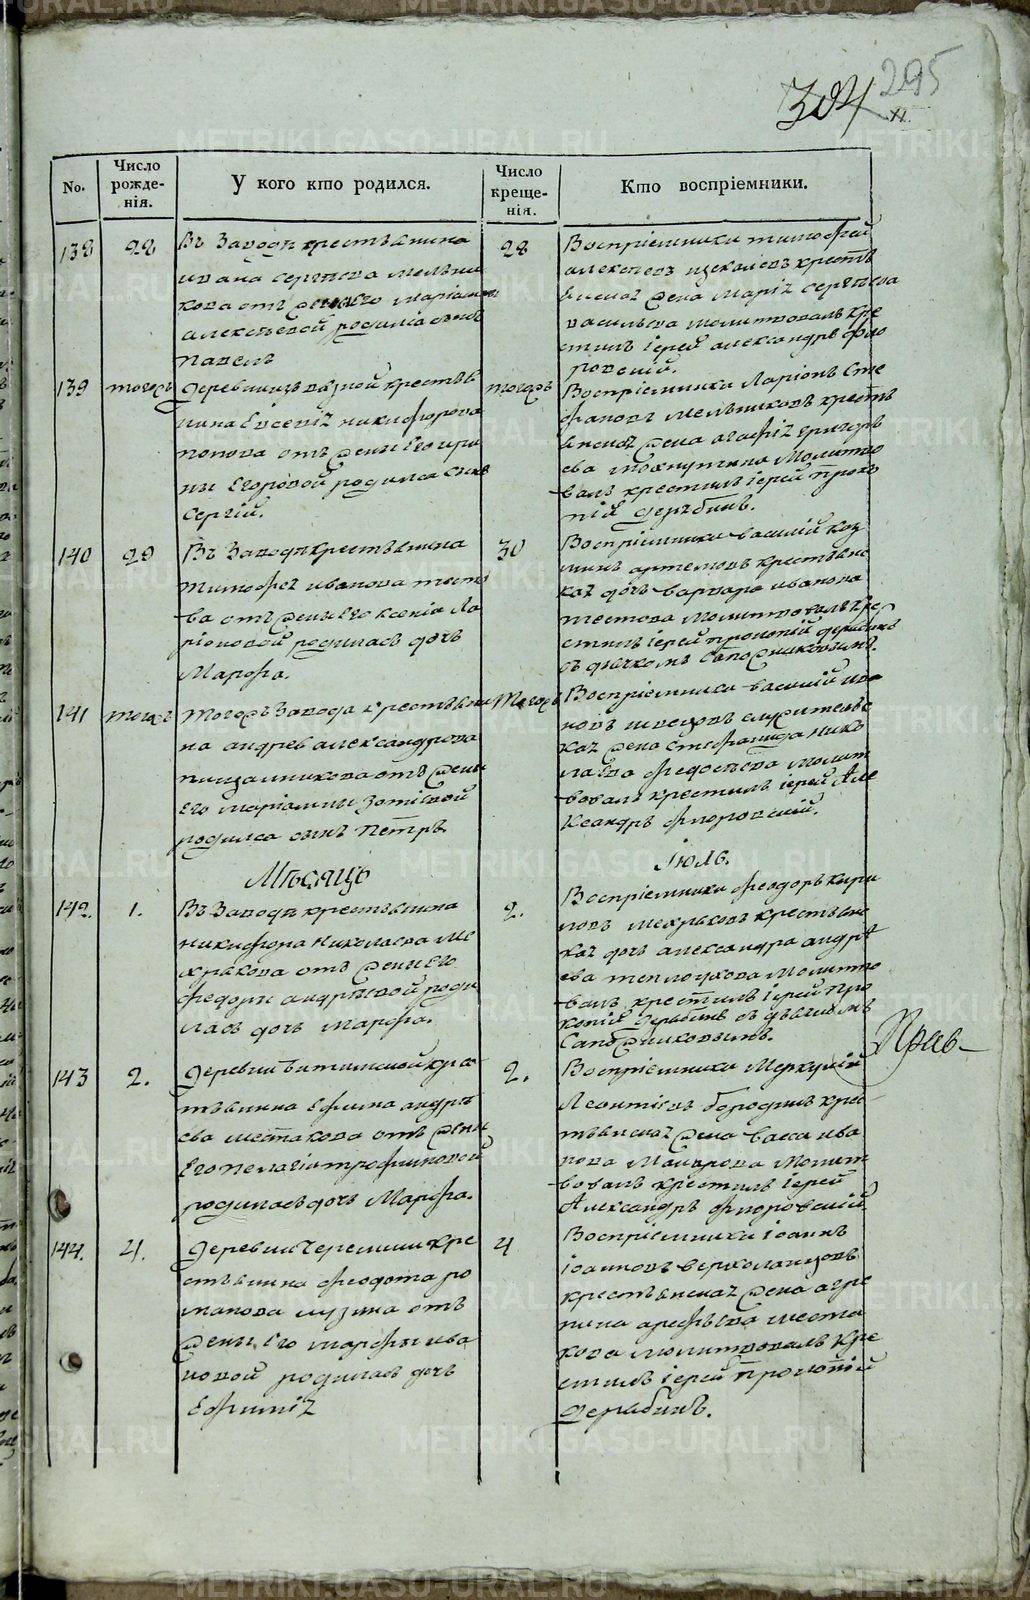 295
304
XI
No.
Число рожде-нія.
У кого кто родился.
Число креще-нія.
Кто воспріемники.
138
28
Въ Заводѣ крестьянина
ивана сергѣева мельни
кова отъ жены его маріамны
алексѣевой родился сынъ
павелъ
28
Воспріемники тимофей
алексѣевъ крестья
жена марія сергѣева
васильева молитвовалъ кре
стилъ іерей александръ фло
ровскій.
139
тогожъ
деревни крестья
нина Евсевія никифорова
попова отъ жены Его ири
ны Егоровой родился сынъ
Сергій.
тогожъ
Воспріемники Ларіонъ Сте
фановъ мельниковъ крестья
нская жена агафія григорье
ева молитво
валъ крестилъ іерей проко
пій дерябинъ.
140
29
Въ Заводѣ крестьянина
тимофея иванова тесто
ва отъ жены Его ксеніи ла
ріоновой родилась дочь
Марфа.
30
Воспріемники василій коз
минъ артемовъ крестьянс
кая дочь варвара иванова
тестова молитвовалъ кре
стилъ іерей прокопій дерябинъ
съ дьячкомъ Сапожниковымъ.
141
тогожъ
тогожъ Завода крестьяни
на андрея александрова
пищальникова отъ жены
Его маріамны Зотѣевой
родился сынъ Петръ.
Тогожъ
Воспріемники василій ива
новъ швецовъ служительс
кая жена стефанида нико
лаева федосѣева молит
вовалъ крестилъ іерей Але
ксандръ флоровскій.
Мѣсяцъ
Іюль.
142.
1.
Въ Заводѣ крестьянина
никифора николаева ме
хрякова отъ жены Его
федоры андрѣевой роди
лась дочь марфа.
2.
Воспріемники феодоръ кири
ловъ мехряковъ крестьянс
кая дочь александра андрѣ
ева теплоухова молитво
валъ крестилъ іерей про
копій дерябинъ съ дьячкомъ
Сапожниковымъ.
Прав-
143
2.
деревни Битимской кре
стьянина Ефима андрѣ
ева шестакова отъ жены
Его пелагіи трофимовой
родилась дочь Марфа.
2.
Воспріемники Меркурій
Леонтіевъ бородинъ крес
тьянская жена васса ива
нова Макарова Молит
вовалъ крестилъ іерей
Александръ флоровскій
144.
4.
деревни Черемши кре
стьянина феодота ро
манова лузина отъ
жены Его марфы ива
новой родилась дочь
Ефимія
4
Воспріемники іоаннъ
іоанновъ верхоланцовъ
крестьянская жена агре
пина арефьева шеста
кова молитвовалъ кре
стилъ іерей прокопій
дерябинъ.
METRIKI.GASO-URAL.RU